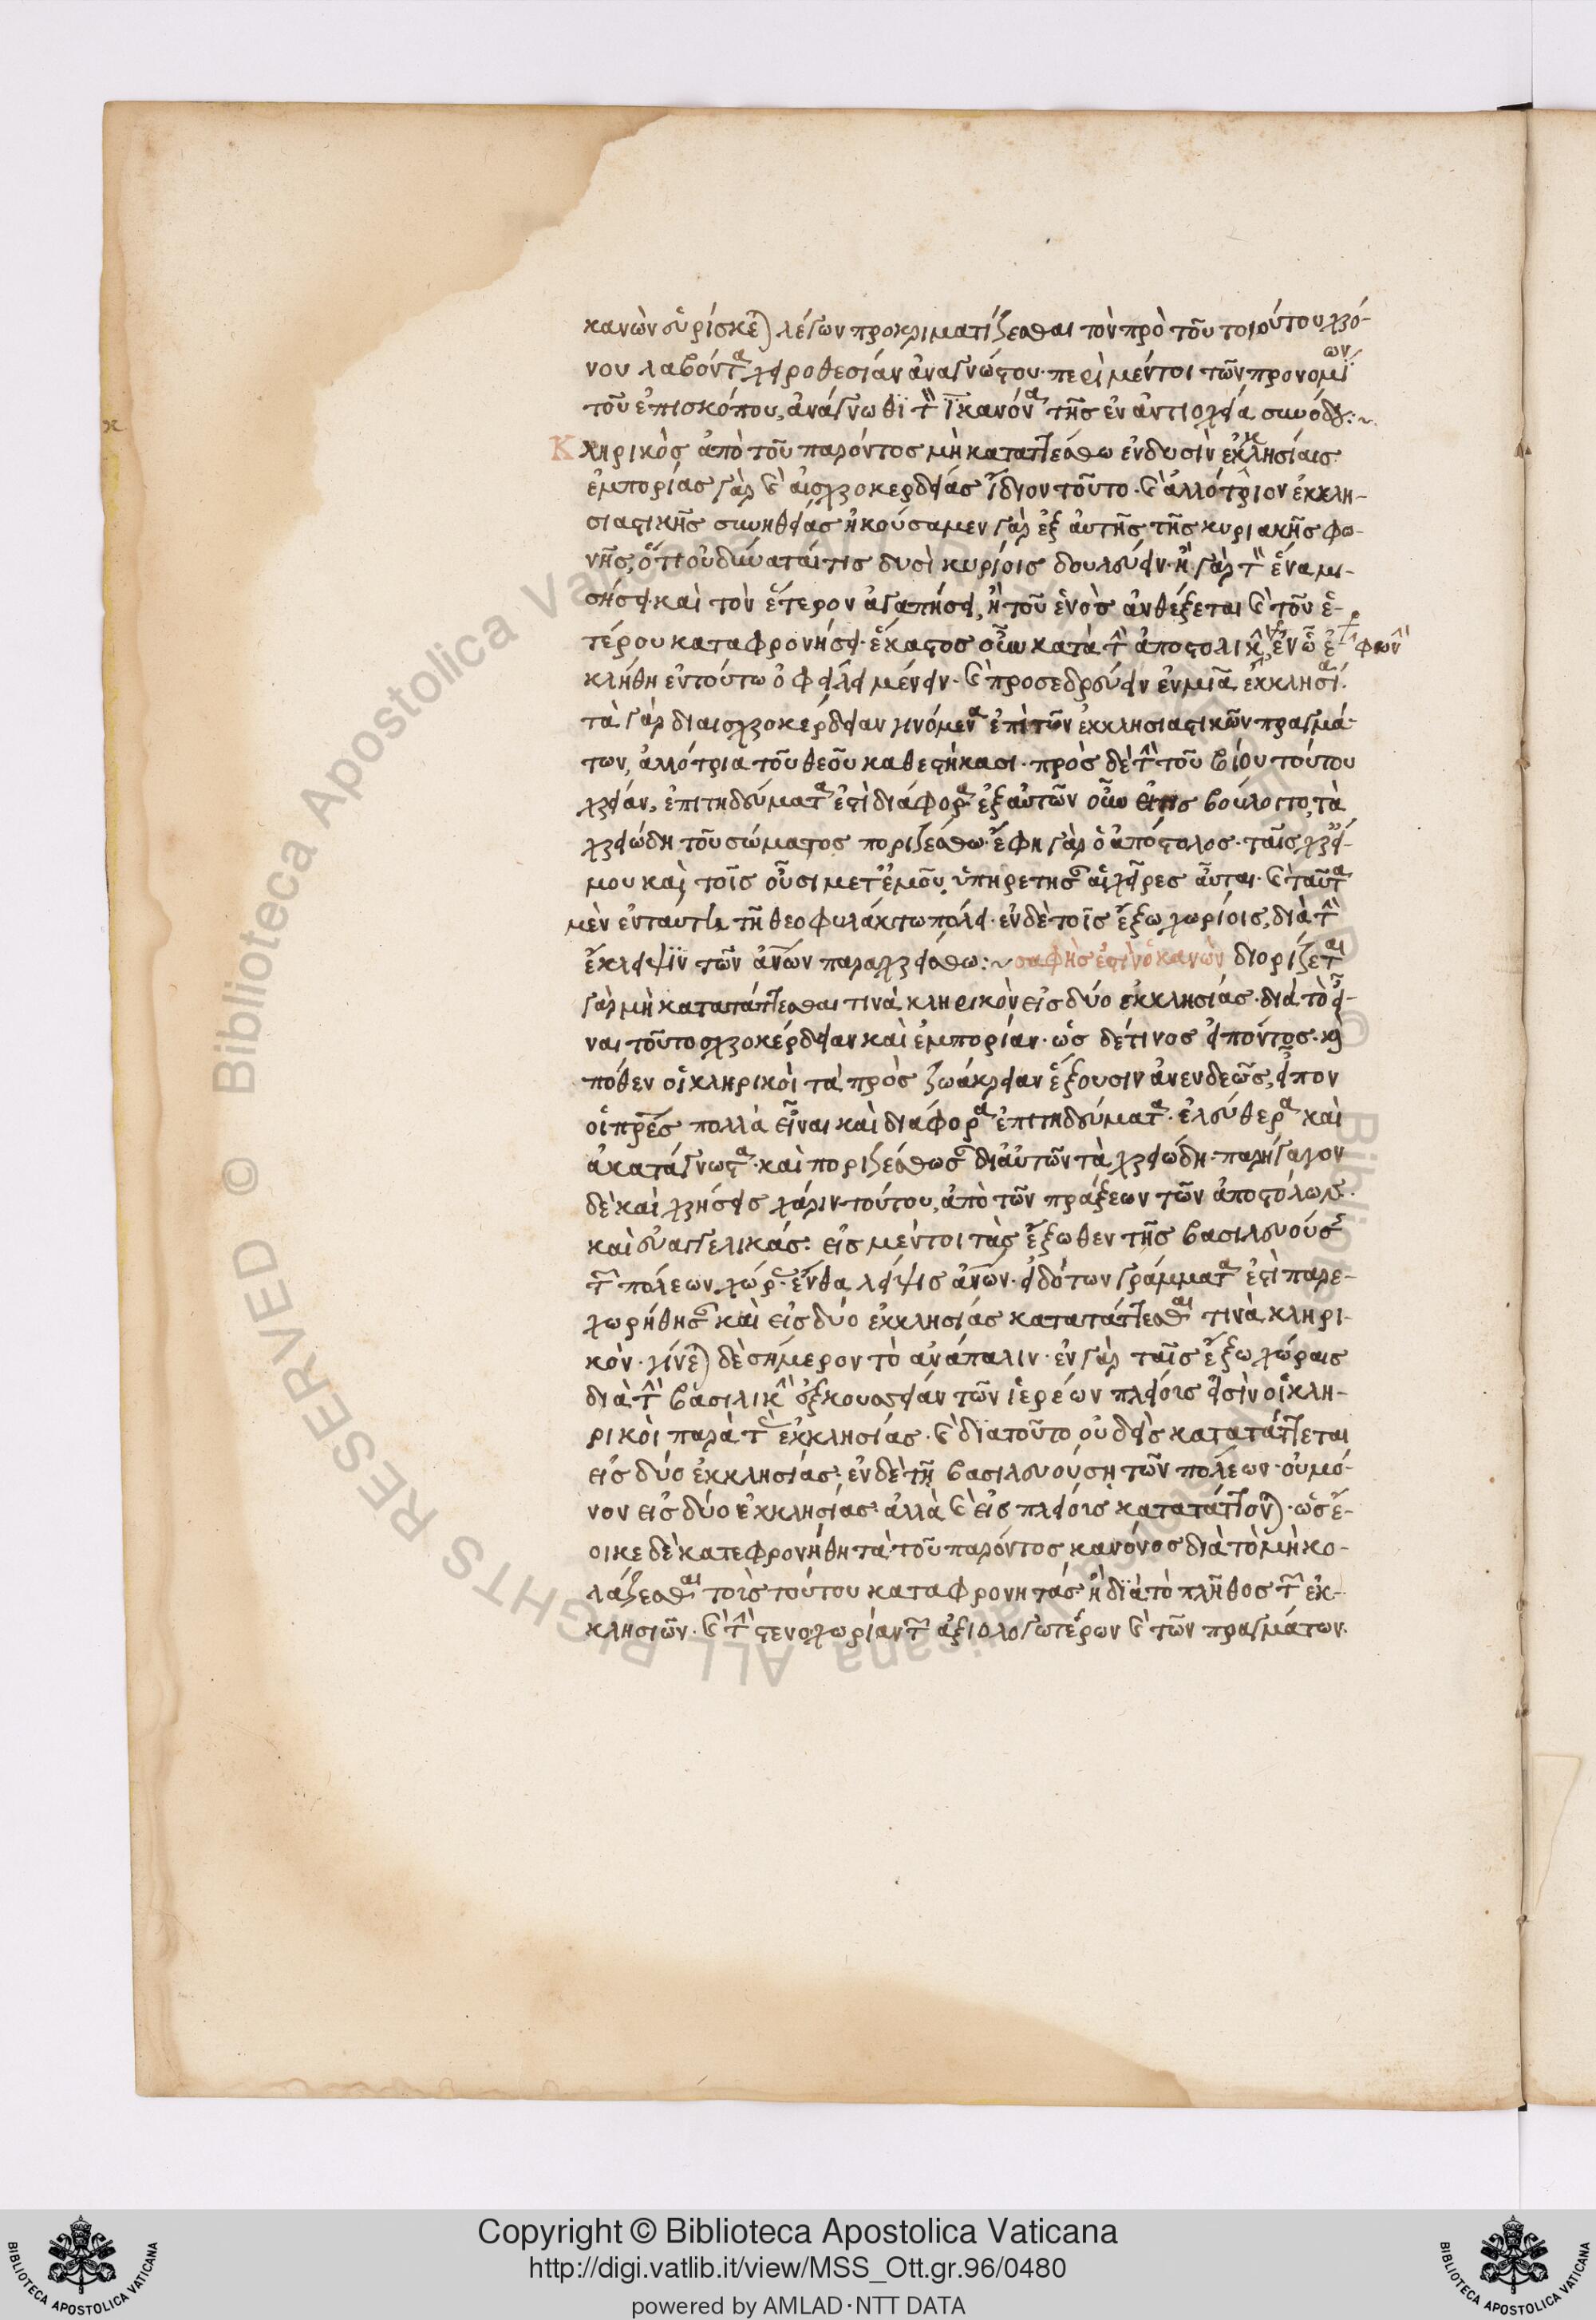 κανὼν εὑρίσκε) λέγων προκριματίζεσθαι τὸν πρὸ τοῦ τοιούτου χρό-
νου λαβόντα χειροθεσίαν ἀναγνώστου· περὶ μέντοι τῶν προνομίων
τοῦ ἐπισκόπου, ἀνάγνωθι τ ι κανόνα τῆς ἐν ἀντιοχεία συνόδου:~
Κληρικὸς ἀπὸ τοῦ παρόντος μὴ καταττέσθω ἐν δυσὶν ἐκκλησίαις
ἐμπορίας γὰρ καὶ αἰσχροκερδείας ἴδιον τοῦτο· καὶ ἀλλότριον ἐκκλη-
σιαστικῆς συνηθείας ἠκούσαμεν γὰρ ἐξ αὐτῆς τῆς κυριακῆς φω-
νῆς, ὅτι οὐ δύναταί τις δυσὶ κυρίοις δουλεύειν· ἢ γὰρ τ ἕνα μι-
σήσει καὶ τὸν ἕτερον ἀγαπήσει, ἢ τοῦ ἑνὸς ἀνθέξεται καὶ τοῦ ἑ-
τέρου καταφρονήσει· ἕκαστος οὖν κατὰ τ ἀποστολικ, ἐν ὧ ἐ- φων
κλήθη ἐν τούτω ὀφείλει μένειν· καὶ προσεδρεύειν ἐν μιᾶ ἐκκλησία.
τὰ γὰρ δι αἰσχροκέρδειαν γινόμενα ἐπὶ τῶν ἐκκλησιαστικῶν πραγμά-
των, ἀλλότρια τοῦ θεοῦ καθεστήκασι· πρὸς δὲ τ τοῦ βίου τούτου
χρείαν, ἐπιτηδεύματα ἐστὶ διάφορα ἐξ αὐτῶν οὖν εἴ τις βούλοιτο, τὰ
χρειώδη τοῦ σώματος ποριζέσθω· ἔφη γὰρ ὁ ἀπόστολος· ταῖς χρεί-
αις μου καὶ τοῖς οὖσι μετ ἐμοῦ ὑπηρετησ αἱ χεῖρες αὗται· καὶ ταῦτα
μὲν ἐν ταύτη τῆ θεοφυλάκτω πόλει· ἐν δὲ τοῖς ἔξω χωρίοις, διὰ τ
ἔκλειψιν τῶν ἀνων παραχρείσθω:~ σαφὴς ἐστὶν ὁ κανὼν διορίζεται
γὰρ μὴ κατατάττεσθαι τινὰ κληρικὸν εἰς δύο ἐκκλησίας· διὰ τὸ εἶ-
ναι τοῦτο αἰσχροκέρδειαν καὶ ἐμπορίαν· ὡς δέ τινος εἰπόντος· καὶ
πόθεν οἱ κληρικοὶ τὰ πρὸς ζωάρκειαν ἕξουσιν ἀνενδεῶς, εἶπον
οἱ πρες πολλὰ εἶναι καὶ διάφορα ἐπιτηδεύματα· ἐλεύθερα καὶ
ἀκατάγνωστα· καὶ ποριζέσθωσ δι αὐτῶν τὰ χρειώδη· παρήγαγον
δὲ καὶ χρήσεις χάριν τούτου, ἀπὸ τῶν πράξεων τῶν ἀποστόλων·
καὶ εὐαγγελικάς. εἰς μέντοι τὰς ἔξωθεν τῆς βασιλευούσ
τ πόλεων χώρ· ἔνθα λεῖψις ἀνων· εἰδότων γράμματα ἐστὶ παρε-
χωρήθησ καὶ εἰς δύο ἐκκλησίας κατατάττεσθαι τινὰ κληρι-
κὸν· γίνε) δὲ σήμερον τὸ ἀνάπαλιν· ἐν γὰρ ταῖς ἔξω χώραις
διὰ τ βασιλικ ἐξκουσείαν τῶν ἱερέων πλείοις εἰσὶν οἱ κλη-
ρικοὶ παρὰ τ ἐκκλησίας· καὶ διατοῦτο οὐδεὶς κατατάττεται
εἰς δύο ἐκκλησίας· ἐν δὲ τῆ βασιλευούση τῶν πόλεων· οὐ μό-
νον εἰς δύο ἐκκλησίας· ἀλλὰ καὶ εἰς πλείοις κατατάττον)· ὡς ἔ-
οικε δὲ κατεφρονήθη τὰ τοῦ παρόντος κανόνος διὰ τὸ μὴ κο-
λάζεσθαι τοὶς τούτου καταφρονητάς ἢ διὰ τὸ πλῆθος τ ἐκ-
κλησιῶν· καὶ τ στενοχωρίαν τ ἀξιολογωτέρων καὶ τῶν πραγμάτων.
Copyright © Biblioteca Apostolica Vaticana
http://digi.vatlib.it/view/MSS_Ott.gr.96/0480
powered by AMLAD·NTT DATA